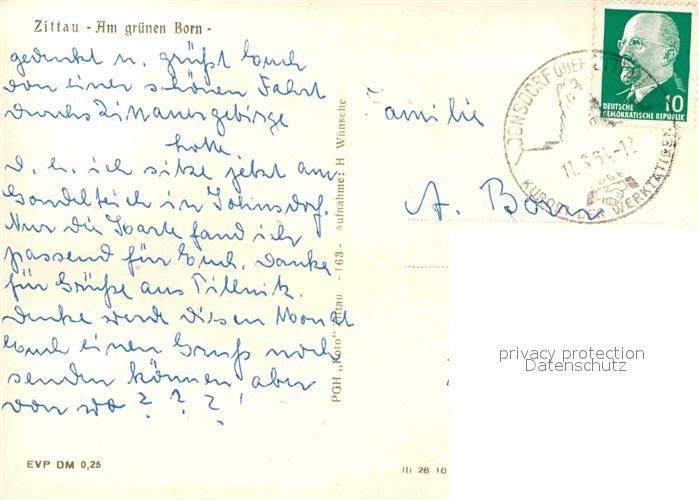 Zittau - Am grünen Born -
gedenkt u. grüßt Euch
von einer schönen Fahrt
durchs Zittauergebirge
Lotte.
D. h. ich sitze jetzt am
Gondelteich in Johnsdorf.
Nur die Karte fand ich
passend für Euch. Danke
für Grüße aus Pillnitz.
Denke werde diesen Monat
Euch einen Gruß noch
senden können aber
von wo ? ? ?!
EVP DM 0,25
PGH „Foto" Zittau - 163 - Aufnahme: H Wünsche
Familie
A. Born
JONSDORF ÜBER ZITTAU
KURORT DER WERKTÄTIGEN
DEUTSCHE
DEMOKRATISCHE REPUBLIK
10
privacy protection
Datenschutz
III 28 10